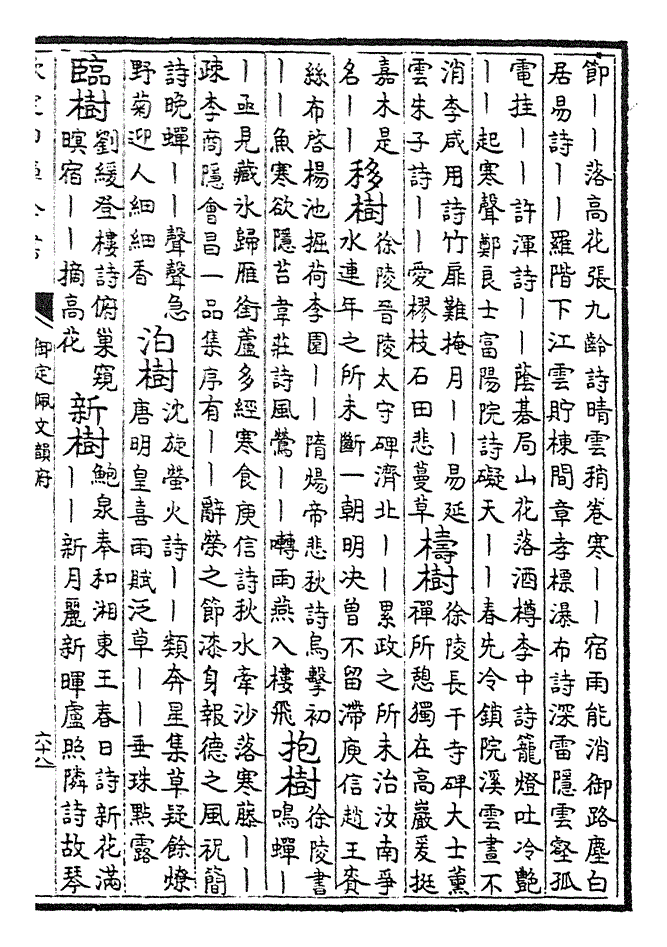 節｜｜落高花張九齡詩晴雲稍卷寒｜｜宿雨能消御路塵白
居易詩｜｜羅階下江雲貯棟間章孝標瀑布詩深雷隱雲壑孤
電挂｜｜許渾詩｜｜蔭碁局山花落酒樽李中詩籠燈吐冷艷
｜｜起寒聲鄭良士富陽院詩礙天｜｜春先冷鎖院溪雲晝不
消李咸用詩竹扉難掩月｜｜易延
雲朱子詩｜｜愛樛枝石田悲蔓草
檮樹
徐陵長干寺碑大士薰
禪所憩獨在高巖爰挺
嘉木是
名｜｜
移樹
徐陵晉陵太守碑濟北｜｜累政之所未治汝南爭
水連年之所未斷一朝明决曾不留滯庾信趙王賚
絲布啓楊池掘荷李園｜｜隋煬帝悲秋詩烏擊初
｜｜魚寒欲隱苔韋莊詩風鶯｜｜囀雨燕入樓飛
抱樹
徐陵書
鳴蟬｜
｜亟見藏氷歸雁銜蘆多經寒食庾信詩秋水牽沙落寒藤｜｜
疎李商隱會昌一品集序有｜｜辭榮之節漆身報德之風祝簡
詩晚蟬｜｜聲聲急
野菊迎人細細香
泊樹
沈旋螢火詩｜｜類奔星集草疑餘燎
唐明皇喜雨賦泛草｜｜垂珠點露
臨樹
劉緩登樓詩俯巢窺
暝宿｜｜摘高花
新樹
鮑泉奉和湘東王春日詩新花滿
｜｜新月麗新暉盧照隣詩故琴
御定佩文韻府
六十八